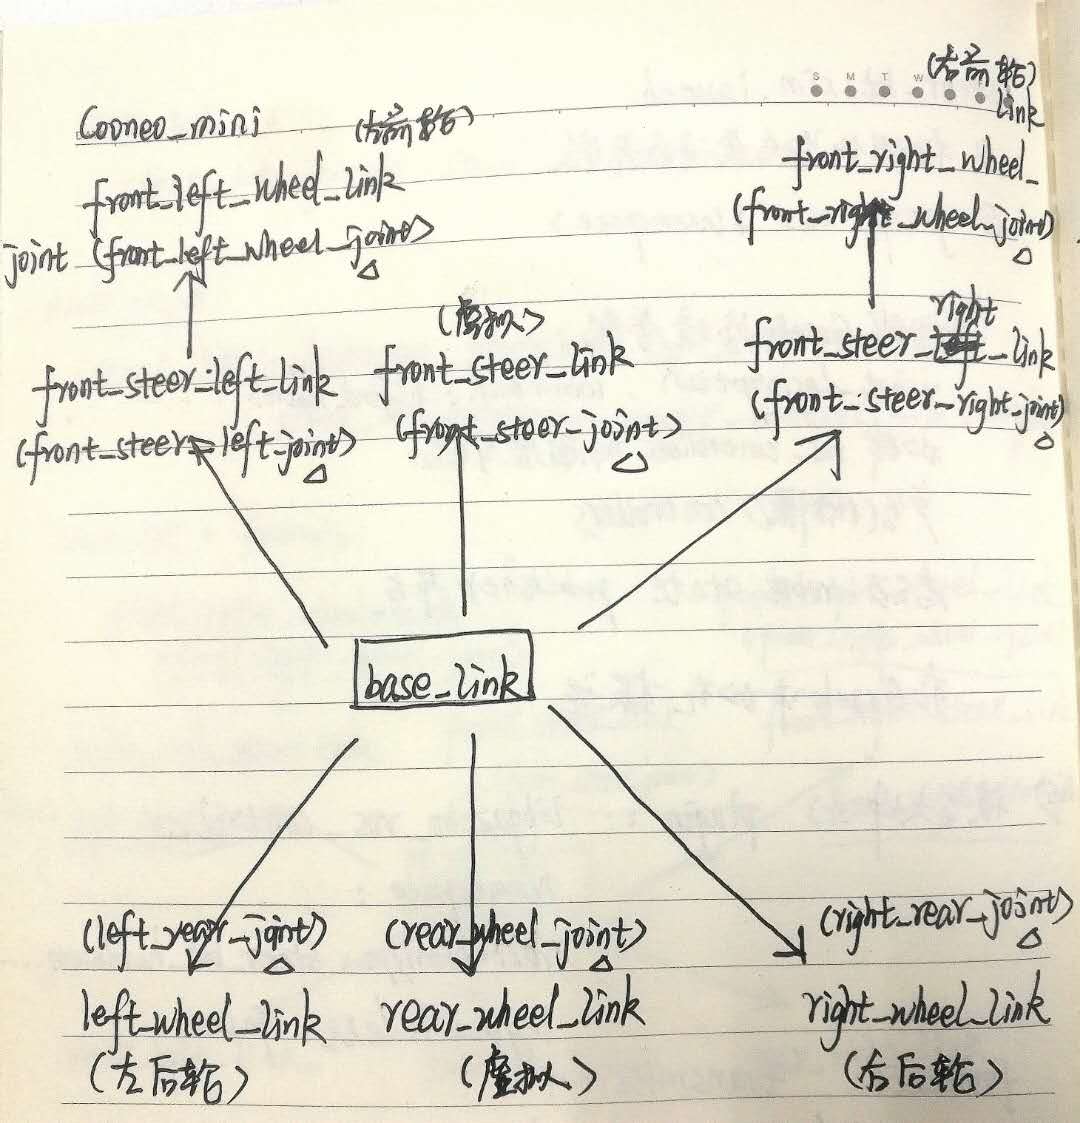 S M T W
(右前轮)
Cooneo_mini
(左前轮)
front_left_wheel_link
joint (front_left_wheel_joint)
front_right_wheel_link
(front_right_wheel_joint)
(虚拟)
front_steer_left_link
(front_steer_left_joint)
front_steer_link
(front_steer_joint)
front_steer_right_link
(front_steer_right_joint)
base_link
(left_rear_joint)
left_wheel_link
(左后轮)
(rear_wheel_joint)
rear_wheel_link
(虚拟)
(right_rear_joint)
right_wheel_link
(右后轮)